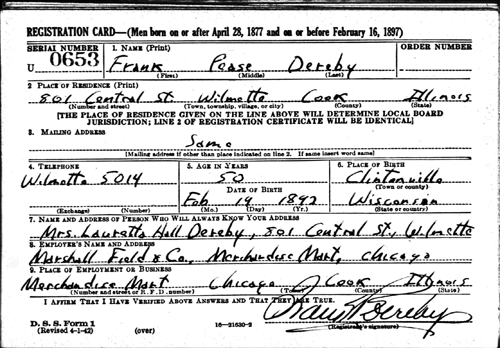 REGISTRATION CARD—(Men born on or after April 28, 1877 and on or before February 16, 1897)
SERIAL NUMBER 1. NAME (Print) ORDER NUMBER
U 0653 Frank Pease Dereby
(First) (Middle) (Last)
2 PLACE OF RESIDENCE (Print)
801 Central St Wilmette Cook Illinois
(Number and street) (Town, township, village, or city) (County) (State)
[THE PLACE OF RESIDENCE GIVEN ON THE LINE ABOVE WILL DETERMINE LOCAL BOARD
JURISDICTION; LINE 2 OF REGISTRATION CERTIFICATE WILL BE IDENTICAL]
3. MAILING ADDRESS
Same
[Mailing address if other than place indicated on line 2. If same insert word same]
4. TELEPHONE 5. AGE IN YEARS 6. PLACE OF BIRTH
Wilmette 5014 50 Clintonville
DATE OF BIRTH (Town or county)
Feb 19 1892 Wisconsin
(Exchange) (Number) (Mo.) (Day) (Yr.) (State or country)
7. NAME AND ADDRESS OF PERSON WHO WILL ALWAYS KNOW YOUR ADDRESS
Mrs. Lauretta Hall Dereby, 801 Central St, Wilmette
8. EMPLOYER'S NAME AND ADDRESS
Marshall Field & Co., Merchandise Mart, Chicago
9. PLACE OF EMPLOYMENT OR BUSINESS
Merchandise Mart Chicago Cook Illinois
(Number and street or R. F. D. number) (Town) (County) (State)
I AFFIRM THAT I HAVE VERIFIED ABOVE ANSWERS AND THAT THEY ARE TRUE.
D. S. S. Form 1
(Revised 4-1-42) (over) 16—21630-2 (Registrant's signature)